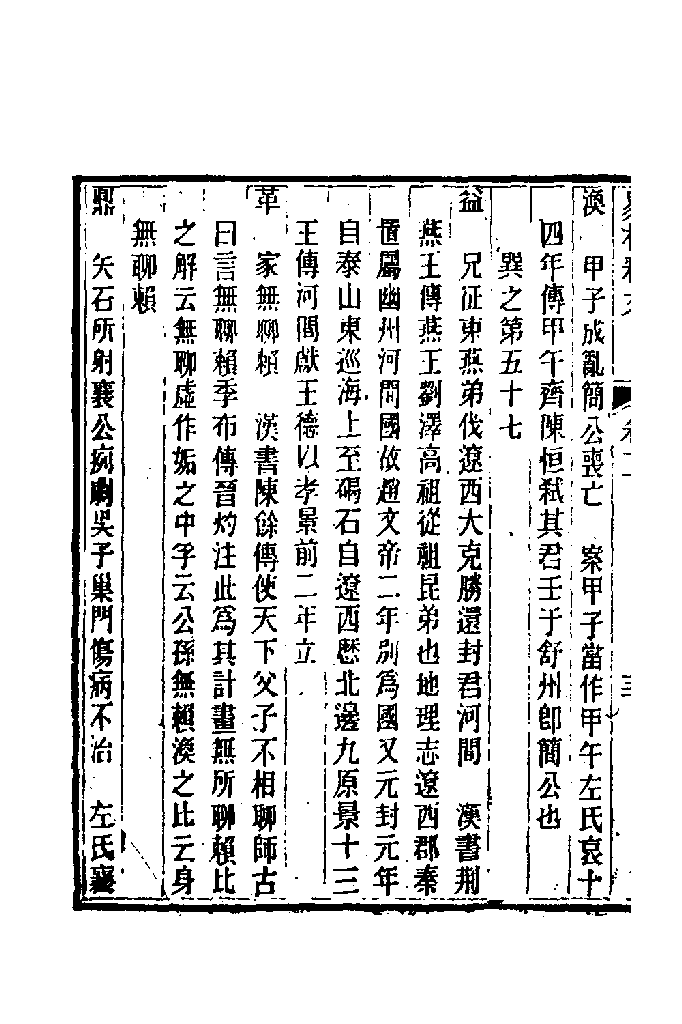 渙　甲子成亂簡公喪亡　案甲子當作甲午左氏哀十
四年傳甲午齊陳恒弒其君壬于舒州卽簡公也
巽之第五十七
益　兄征東燕弟伐遼西大克勝還封君河間　漢書荆
燕王傳燕王劉澤高祖從祖昆弟也地理志遼西郡秦
置屬幽州河間國故趙文帝二年別爲國又元封元年
自泰山東巡海上至碣石自遼西歷北邊九原景十三
王傳河間獻王德以孝景前二年立
革　家無聊賴　漢書陳餘傳使天下父子不相聊師古
曰言無聊賴季布傳晉灼注此爲其計畫無所聊賴比
之解云無聊虛作姤之中孚云公孫無賴渙之比云身
無聊賴
鼎　矢石所射襄公病劇吳子巢門傷病不治　左氏襄